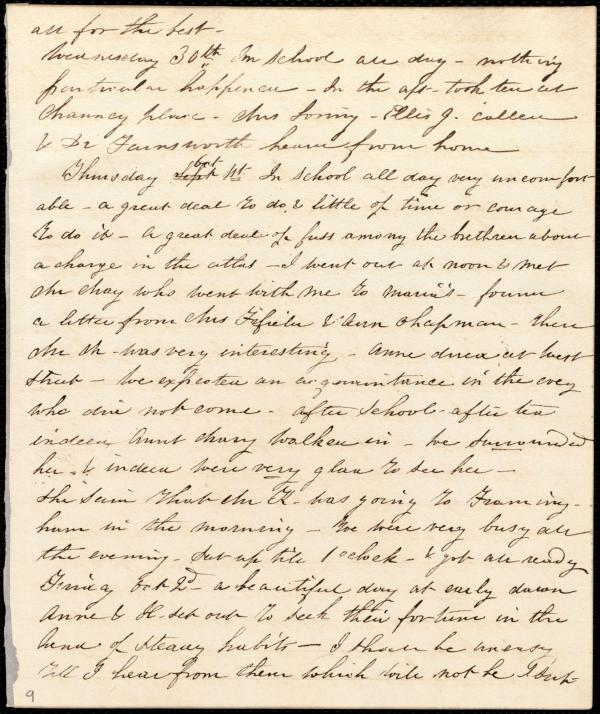 all for the best -
Wednesday 30th In school all day - nothing
particular happened - In the aft - took tea at
Chauncy place - Mrs Loring - Ellis G. called
& Dr Farnsworth heard from home
Thursday Sept Oct 1st In school all day very uncomfort
able - a great deal to do, & little of time or courage
to do it - A great deal of fuss among the brethren about
a change in the atlas - I went out at noon & met
Mr May who went with me to Maria's - found
a letter from Mrs Fifield & Ann Chapman - there
Mr Ch - was very interesting - Anne dined at West
Street - We expected an acquaintance in the eveg
who did not come - after school - after tea
indeed Aunt Mary walked in - We surrounded
her - & indeed were very glad to see her -
She said that Mr K - was going to Framing-
ham in the morning - We were very busy all
the evening - Sat up till 1 o'clock - & got all ready
Friday Oct 2d - a beautiful day at early dawn
Anne & H - set out to seek their fortune in the
land of steady habits - I shall be uneasy
till I hear from them which will not be I sup-
9